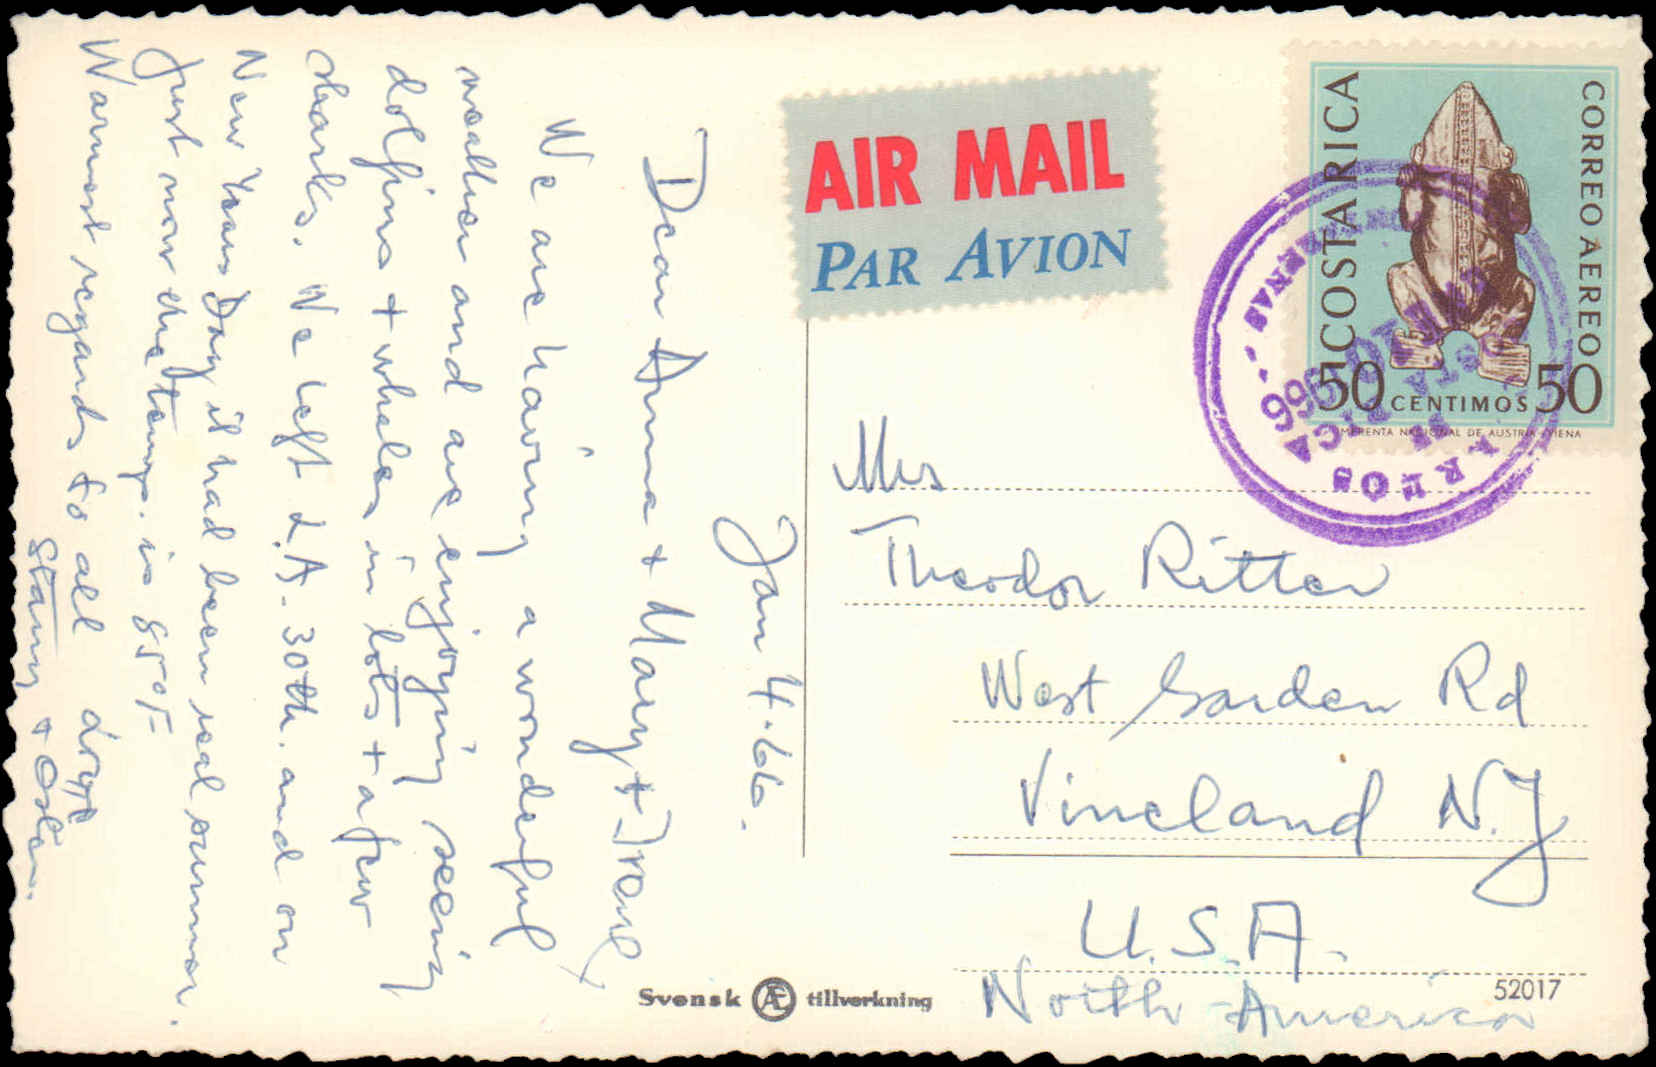 Jan 4.66.
Dear Anna + Mary + Irene,
We are having a wonderful
weather and are enjoying seeing
dolfins + whales in lots + a few
sharks. We left L.A. 30th. and on
New Years Day it had been real summer.
Just now the temp. is 85°F
Warmest regards to all
Stany +
AIR MAIL
PAR AVION
COSTA RICA
CORREO AEREO
50 CENTIMOS 50
IMPRENTA NACIONAL DE AUSTRIA VIENA
Mrs
Theodor Ritter
West Garden Rd
Vineland N.J
U.S.A.
North America
Svensk Æ tillverkning
52017